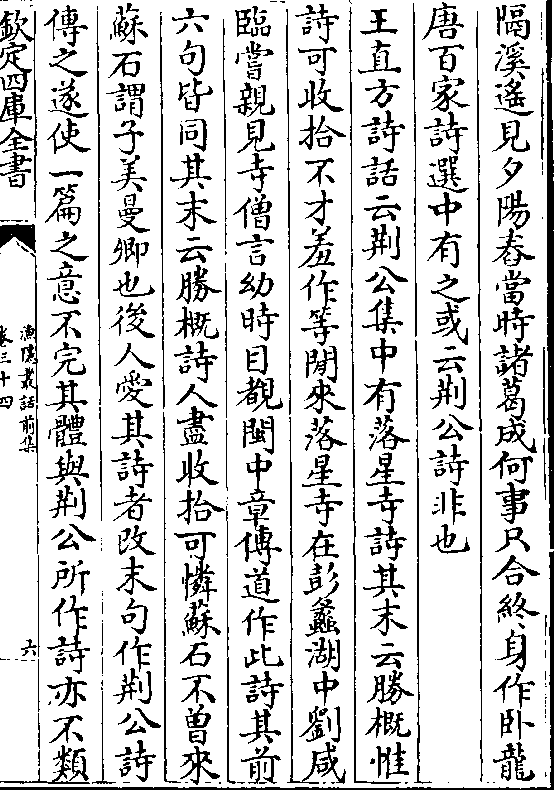 隔溪遙見夕陽舂當時諸葛成何事只合終身作卧龍
唐百家詩選中有之或云荆公詩非也
王直方詩話云荆公集中有落星寺詩其末云勝概惟
詩可收拾不才羞作等閒來落星寺在彭蠡湖中劉咸
臨嘗親見寺僧言幼時目覩閩中章傳道作此詩其前
六句皆同其末云勝概詩人盡收拾可憐蘇石不曾來
蘇石謂子美曼卿也後人愛其詩者改末句作荆公詩
傳之遂使一篇之意不完其體與荆公所作詩亦不類
欽定四庫全書
漁隱叢話前集
卷三十四
六